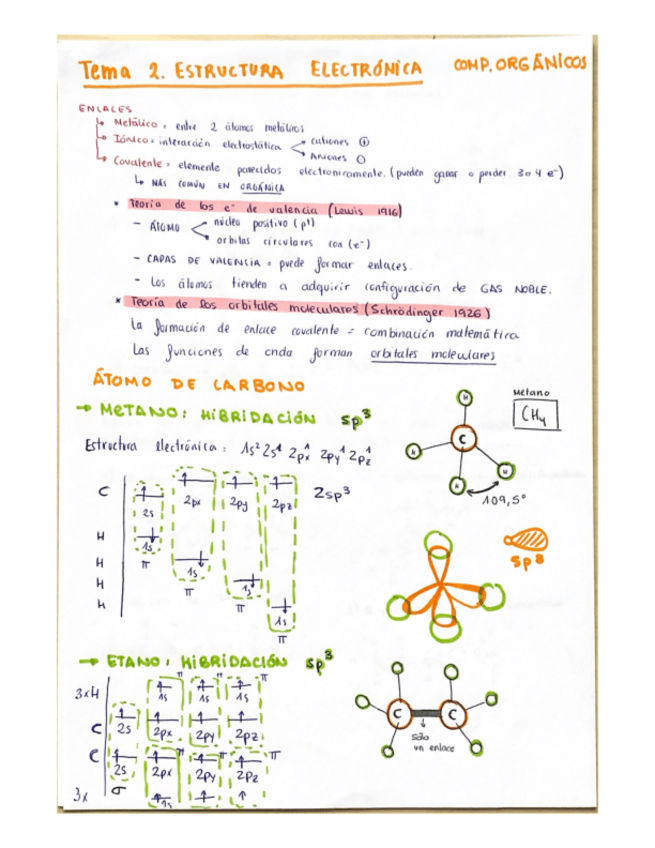 Tema 2. ESTRUCTURA ELECTRÓNICA COMP. ORGÁNICOS
ENLACES
↳ Metálico = entre 2 átomos metálicos
↳ Iónico = interacción electrostática < cationes ⊕
Aniones ⊖
↳ Covalente = elemente parecidos electronicamente. (pueden ganar o perder 3 o 4 e⁻)
↳ MÁS COMÚN EN ORGÁNICA
* Teoría de los e⁻ de valencia (Lewis 1916)
- ÁTOMO < núcleo positivo (p⁺)
orbitas circulares con (e⁻)
- CAPAS DE VALENCIA = puede formar enlaces.
- Los átomos tienden a adquirir configuración de GAS NOBLE.
* Teoría de los orbitales moleculares (Schrödinger 1926)
La formación de enlace covalente = combinación matemática
Las funciones de onda forman orbitales moleculares
ÁTOMO DE CARBONO
→ METANO: HIBRIDACIÓN sp³
Metano
CH₄
Estructura electrónica: 1s² 2s¹ 2px¹ 2py¹ 2pz¹
H
H
C
H
H
109,5°
C
2s
2px
2py
2pz
2sp³
H
1s
π
H
1s
π
H
1s
π
H
1s
π
sp³
→ ETANO: HIBRIDACIÓN sp³
3xH
π
π
π
1s
1s
1s
C
2s
2px
2py
2pz
C
2s
2px
2py
2pz
π
π
π
σ
3x
1s
C
C
sólo
un enlace